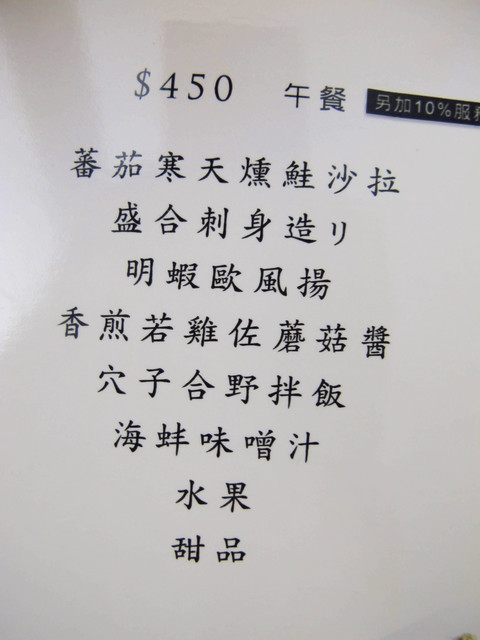 $450 午餐 另加10%服
蕃茄寒天燻鮭沙拉
盛合刺身造り
明蝦歐風揚
香煎若雞佐蘑菇醬
穴子合野拌飯
海蚌味噌汁
水果
甜品